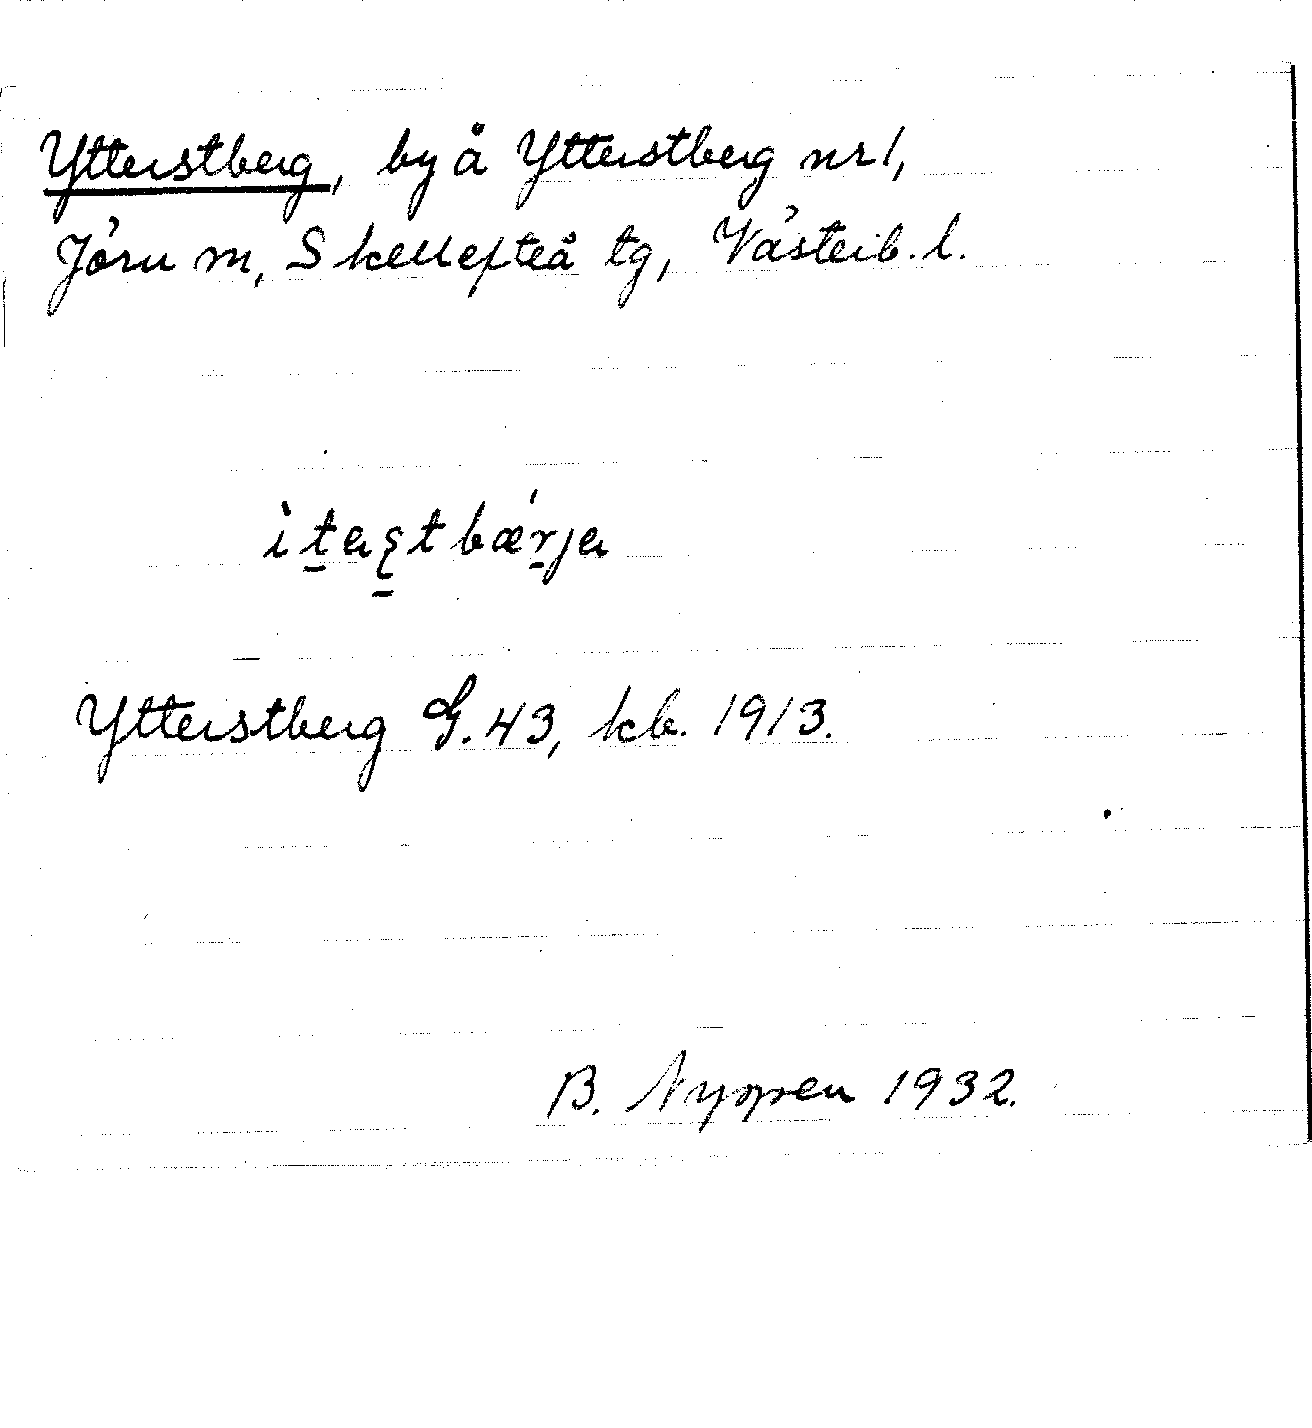 Ytterstberg, by å Ytterstberg nr 1,
Jörn m, Skellefteå tg, Västerb. l.
ìt̠aʂ̠tbæŕ̠ja
Ytterstberg G. 43, kb. 1913.
B. Nyppen 1932.